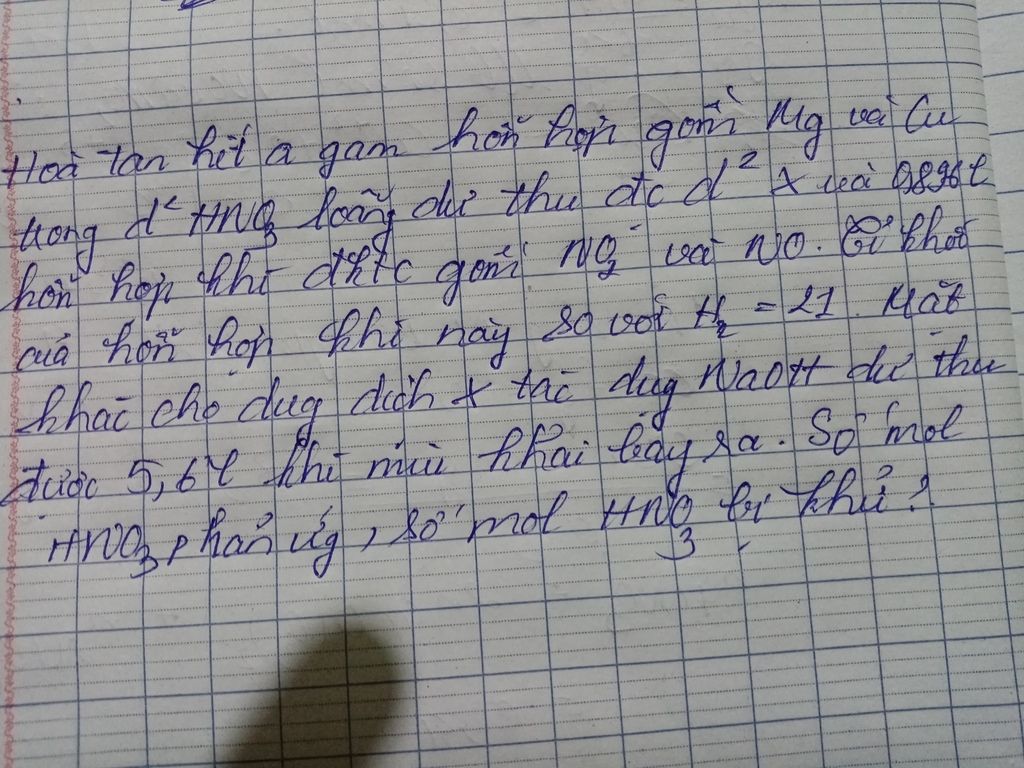 Hoà tan hết a gam hỗn hợp gồm Mg và Cu
trong d² HNO3 loãng dư thu đc d² X và 0,896 l
hỗn hợp khí đktc gồm NO2 và NO. Tỉ khối
của hỗn hợp khí này so với H2 = 21. Mặt
khác cho dug dịch X tác dug NaOH dư thu
được 5,6 l khí mùi khai bay ra. Số mol
HNO3 phản ứg, số mol HNO3 bị khử?